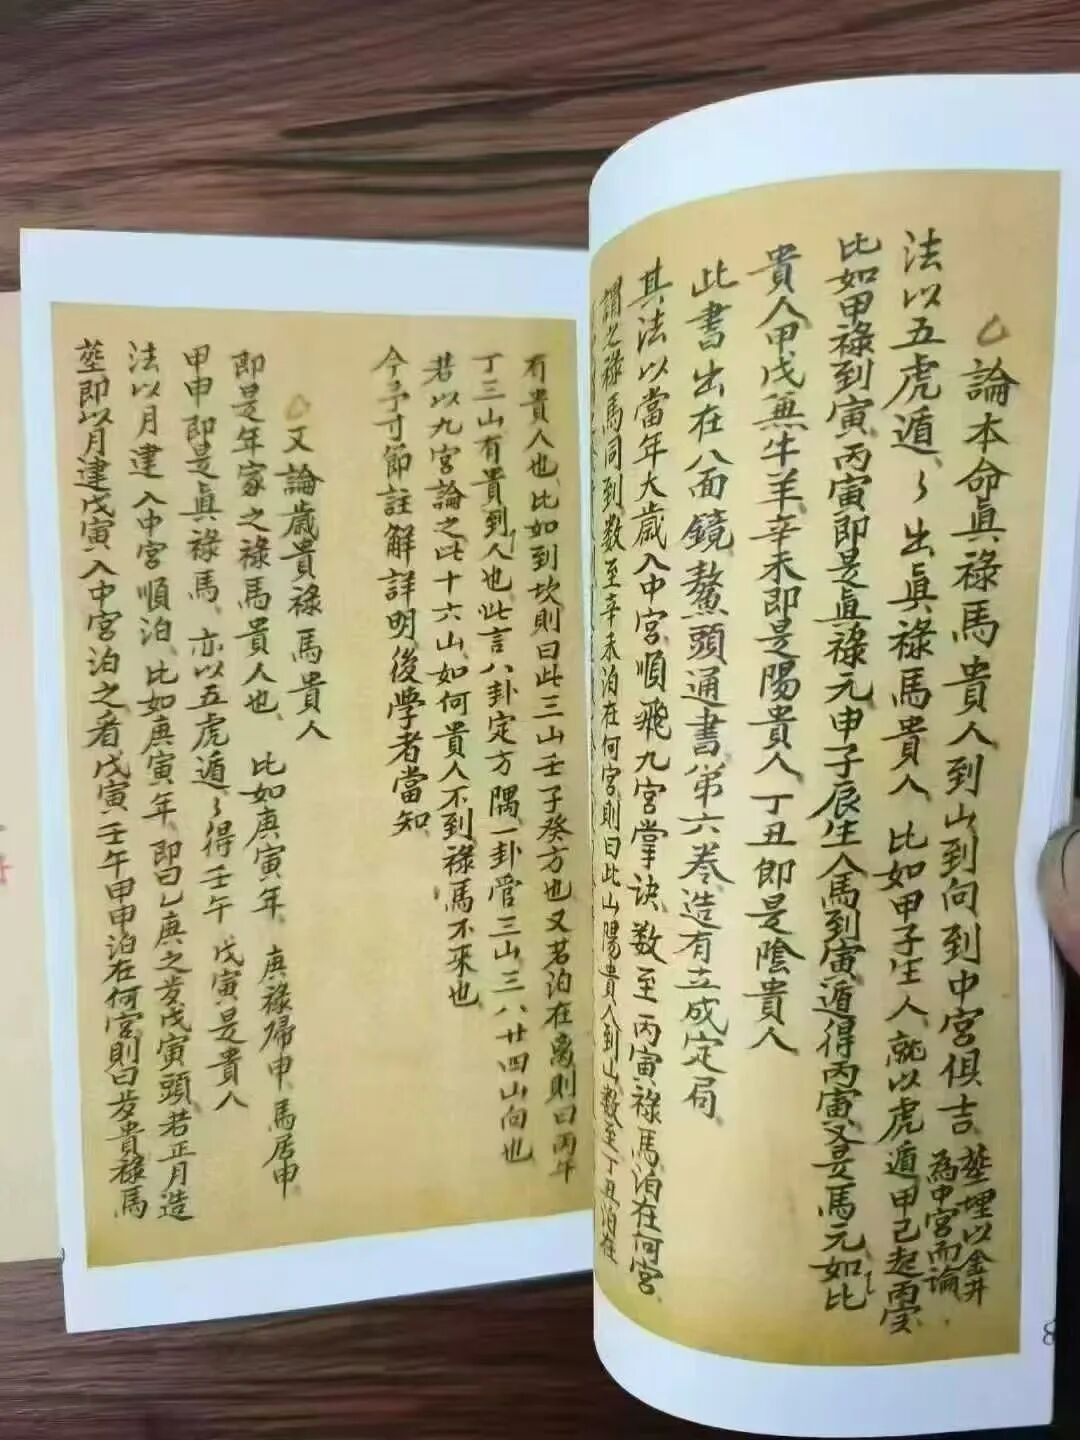 論本命眞祿馬貴人到山到向到中宮俱吉
塟埋以金井
為中宮而論
法以五虎遁、〻出眞祿馬貴人 比如甲子生人就以虎遁甲己起丙寅
比如甲祿到寅丙寅即是眞祿元申子辰生人馬到寅遁得丙寅又是馬元如比
貴人甲戊兼牛羊辛未即是陽貴人丁丑即是陰貴人
此書出在八面鏡鰲頭通書第六卷造有立成定局
其法以當年大歲入中宮順飛九宮掌訣数至丙寅祿馬泊在何宮
謂之祿馬同到数至辛未泊在何宮則曰此山陽貴人到山数至丁丑泊在
有貴人也比如到坎則曰此三山壬子癸方也又若泊在离則曰丙午
丁三山有貴到人也此言八卦定方隅一卦管三山三八廿四山向也
若以九宮論之此十六山如何貴人不到祿馬不來也
今予寸節註解詳明後學者當知
又論歲貴祿馬貴人
即是年家之祿馬貴人也 比如庚寅年 庚祿歸申馬居申
甲申即是眞祿馬亦以五虎遁〻得壬午 戊寅是貴人
法以月建入中宮順泊比如庚寅年即曰乙庚之岁戊寅頭若正月造
塟即以月建戊寅入中宮泊之看戊寅壬午甲申泊在何宮則曰岁貴祿馬